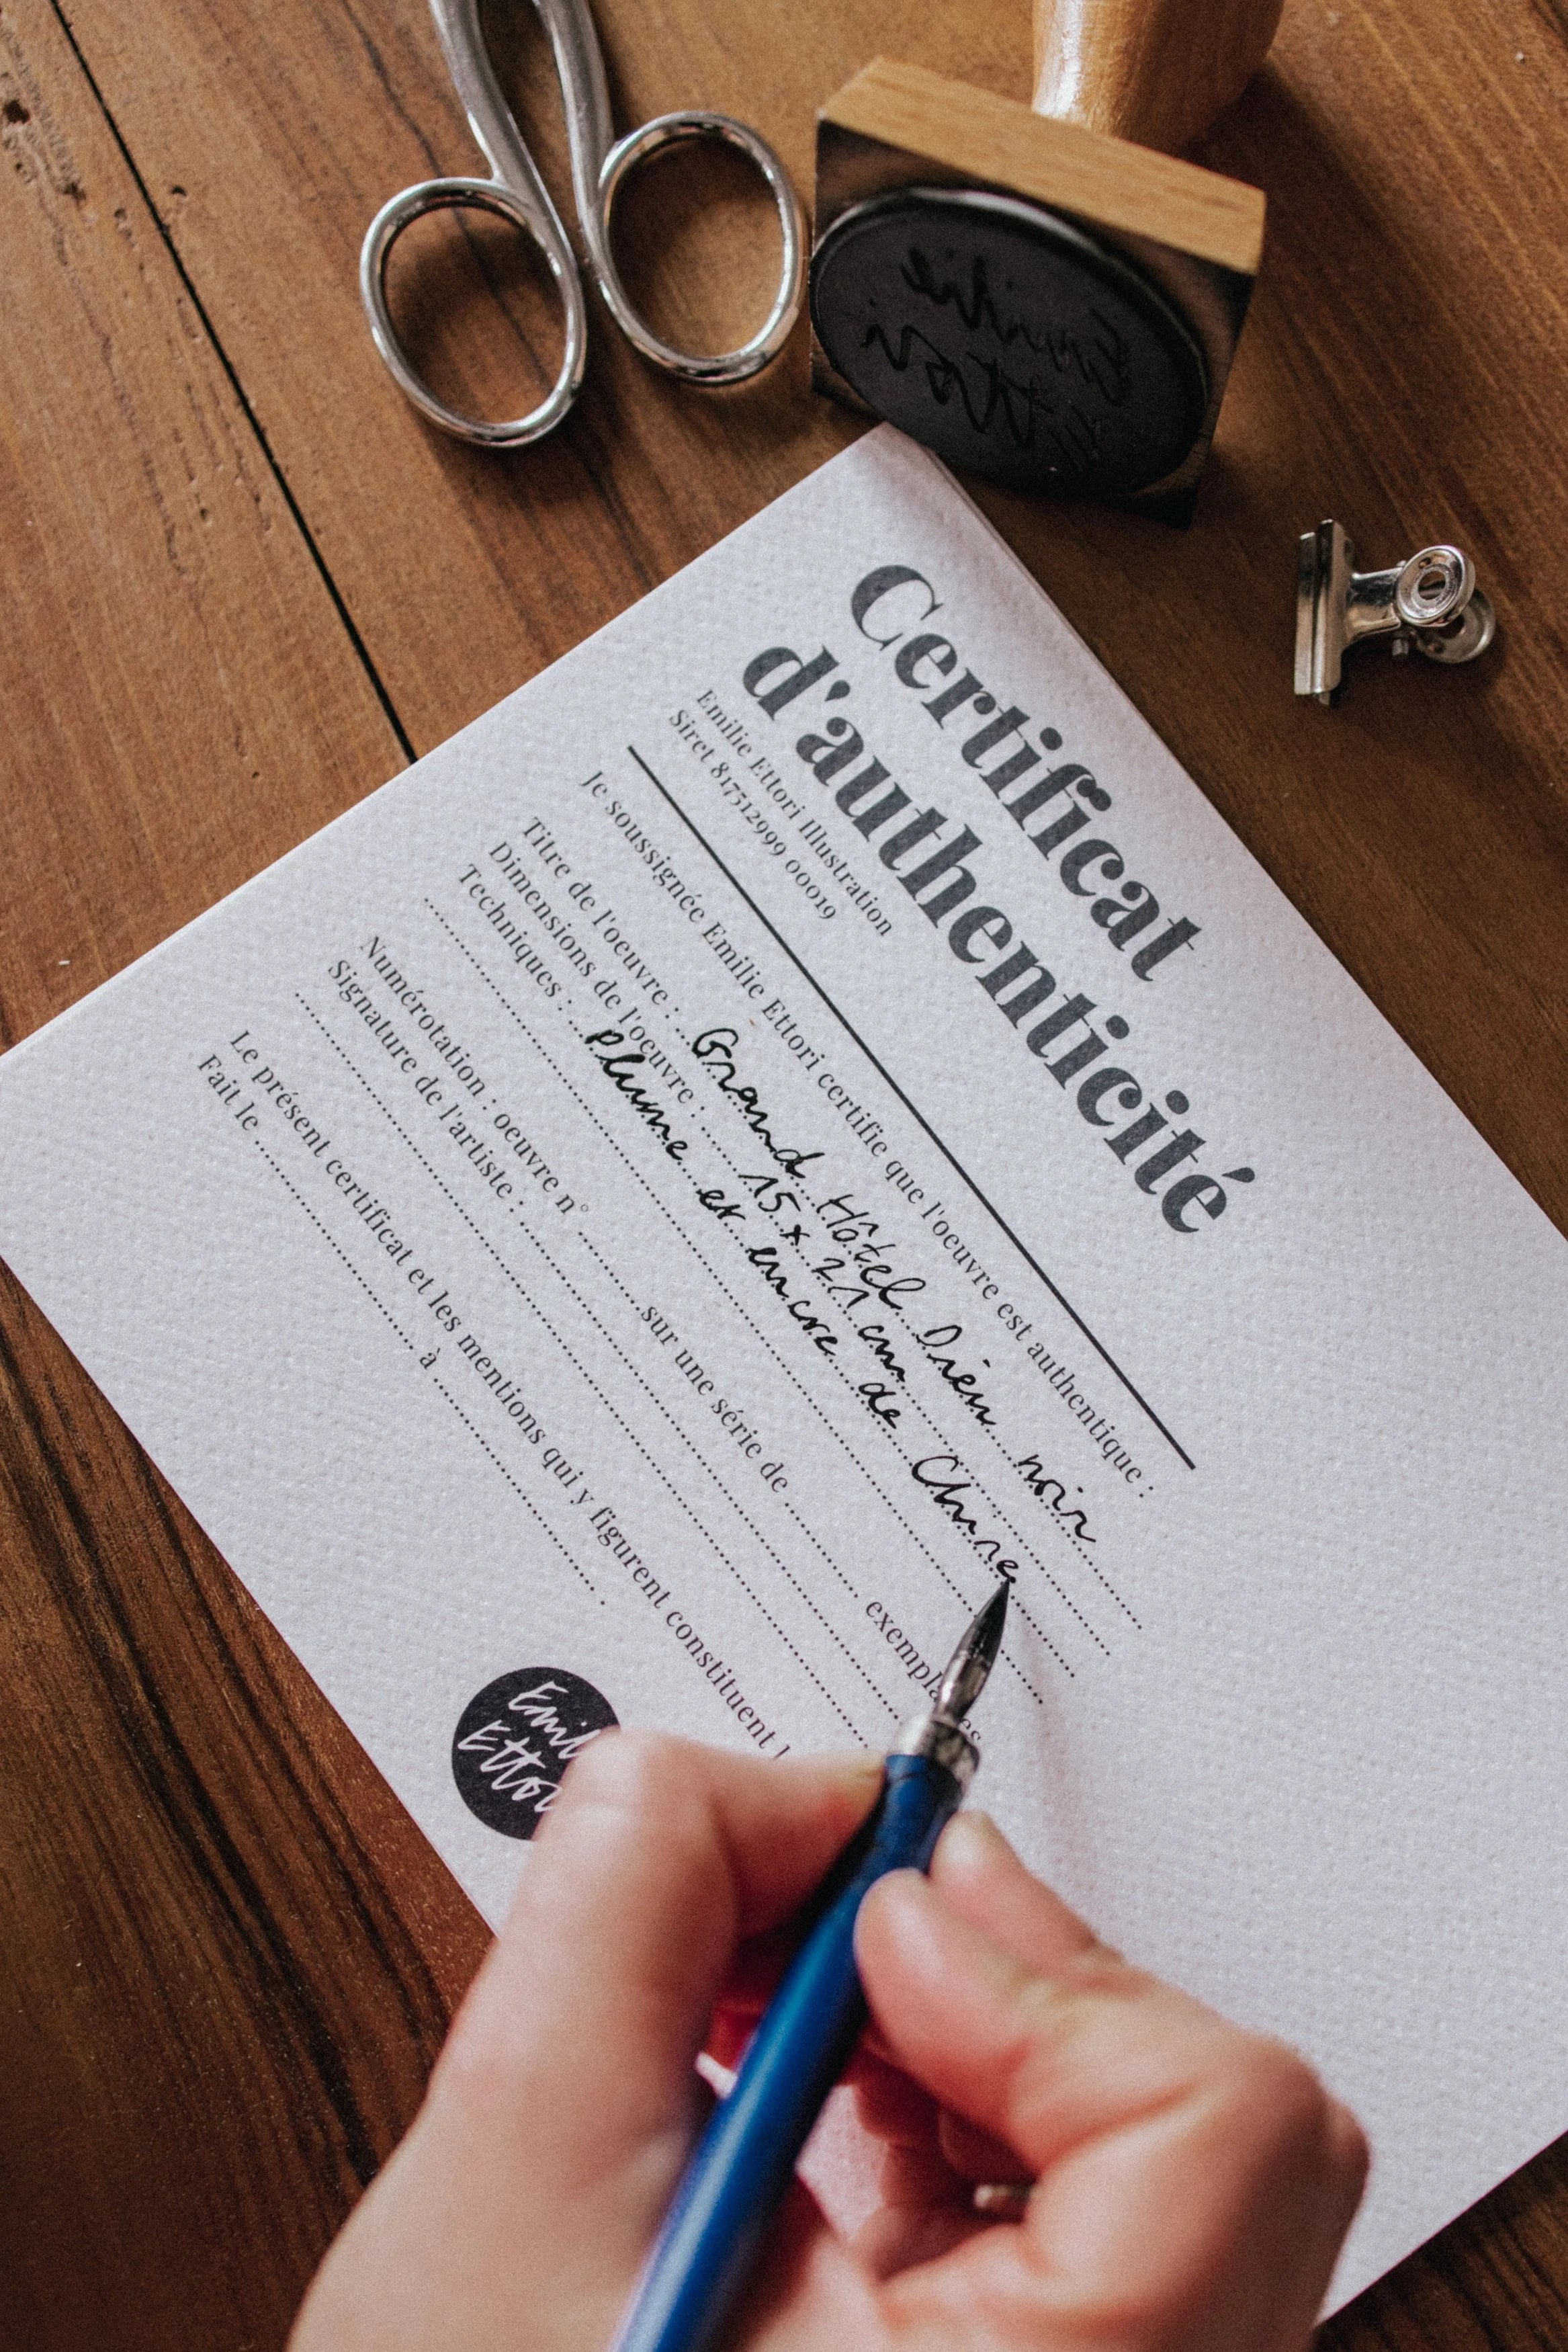 Certificat
d'authenticité
Emilie Ettori Illustration
Siret 817512999 00019
Je soussignée Emilie Ettori certifie que l'oeuvre est authentique :
Titre de l'oeuvre : Grand Hôtel Dieu noir
Dimensions de l'oeuvre : 15 x 21 cm
Techniques : plume et encre de Chine
Numérotation : oeuvre n° sur une série de exemplaires
Signature de l'artiste :
Le présent certificat et les mentions qui y figurent constituent
Fait le à
Emilie
Ettori
Emilie
Ettori